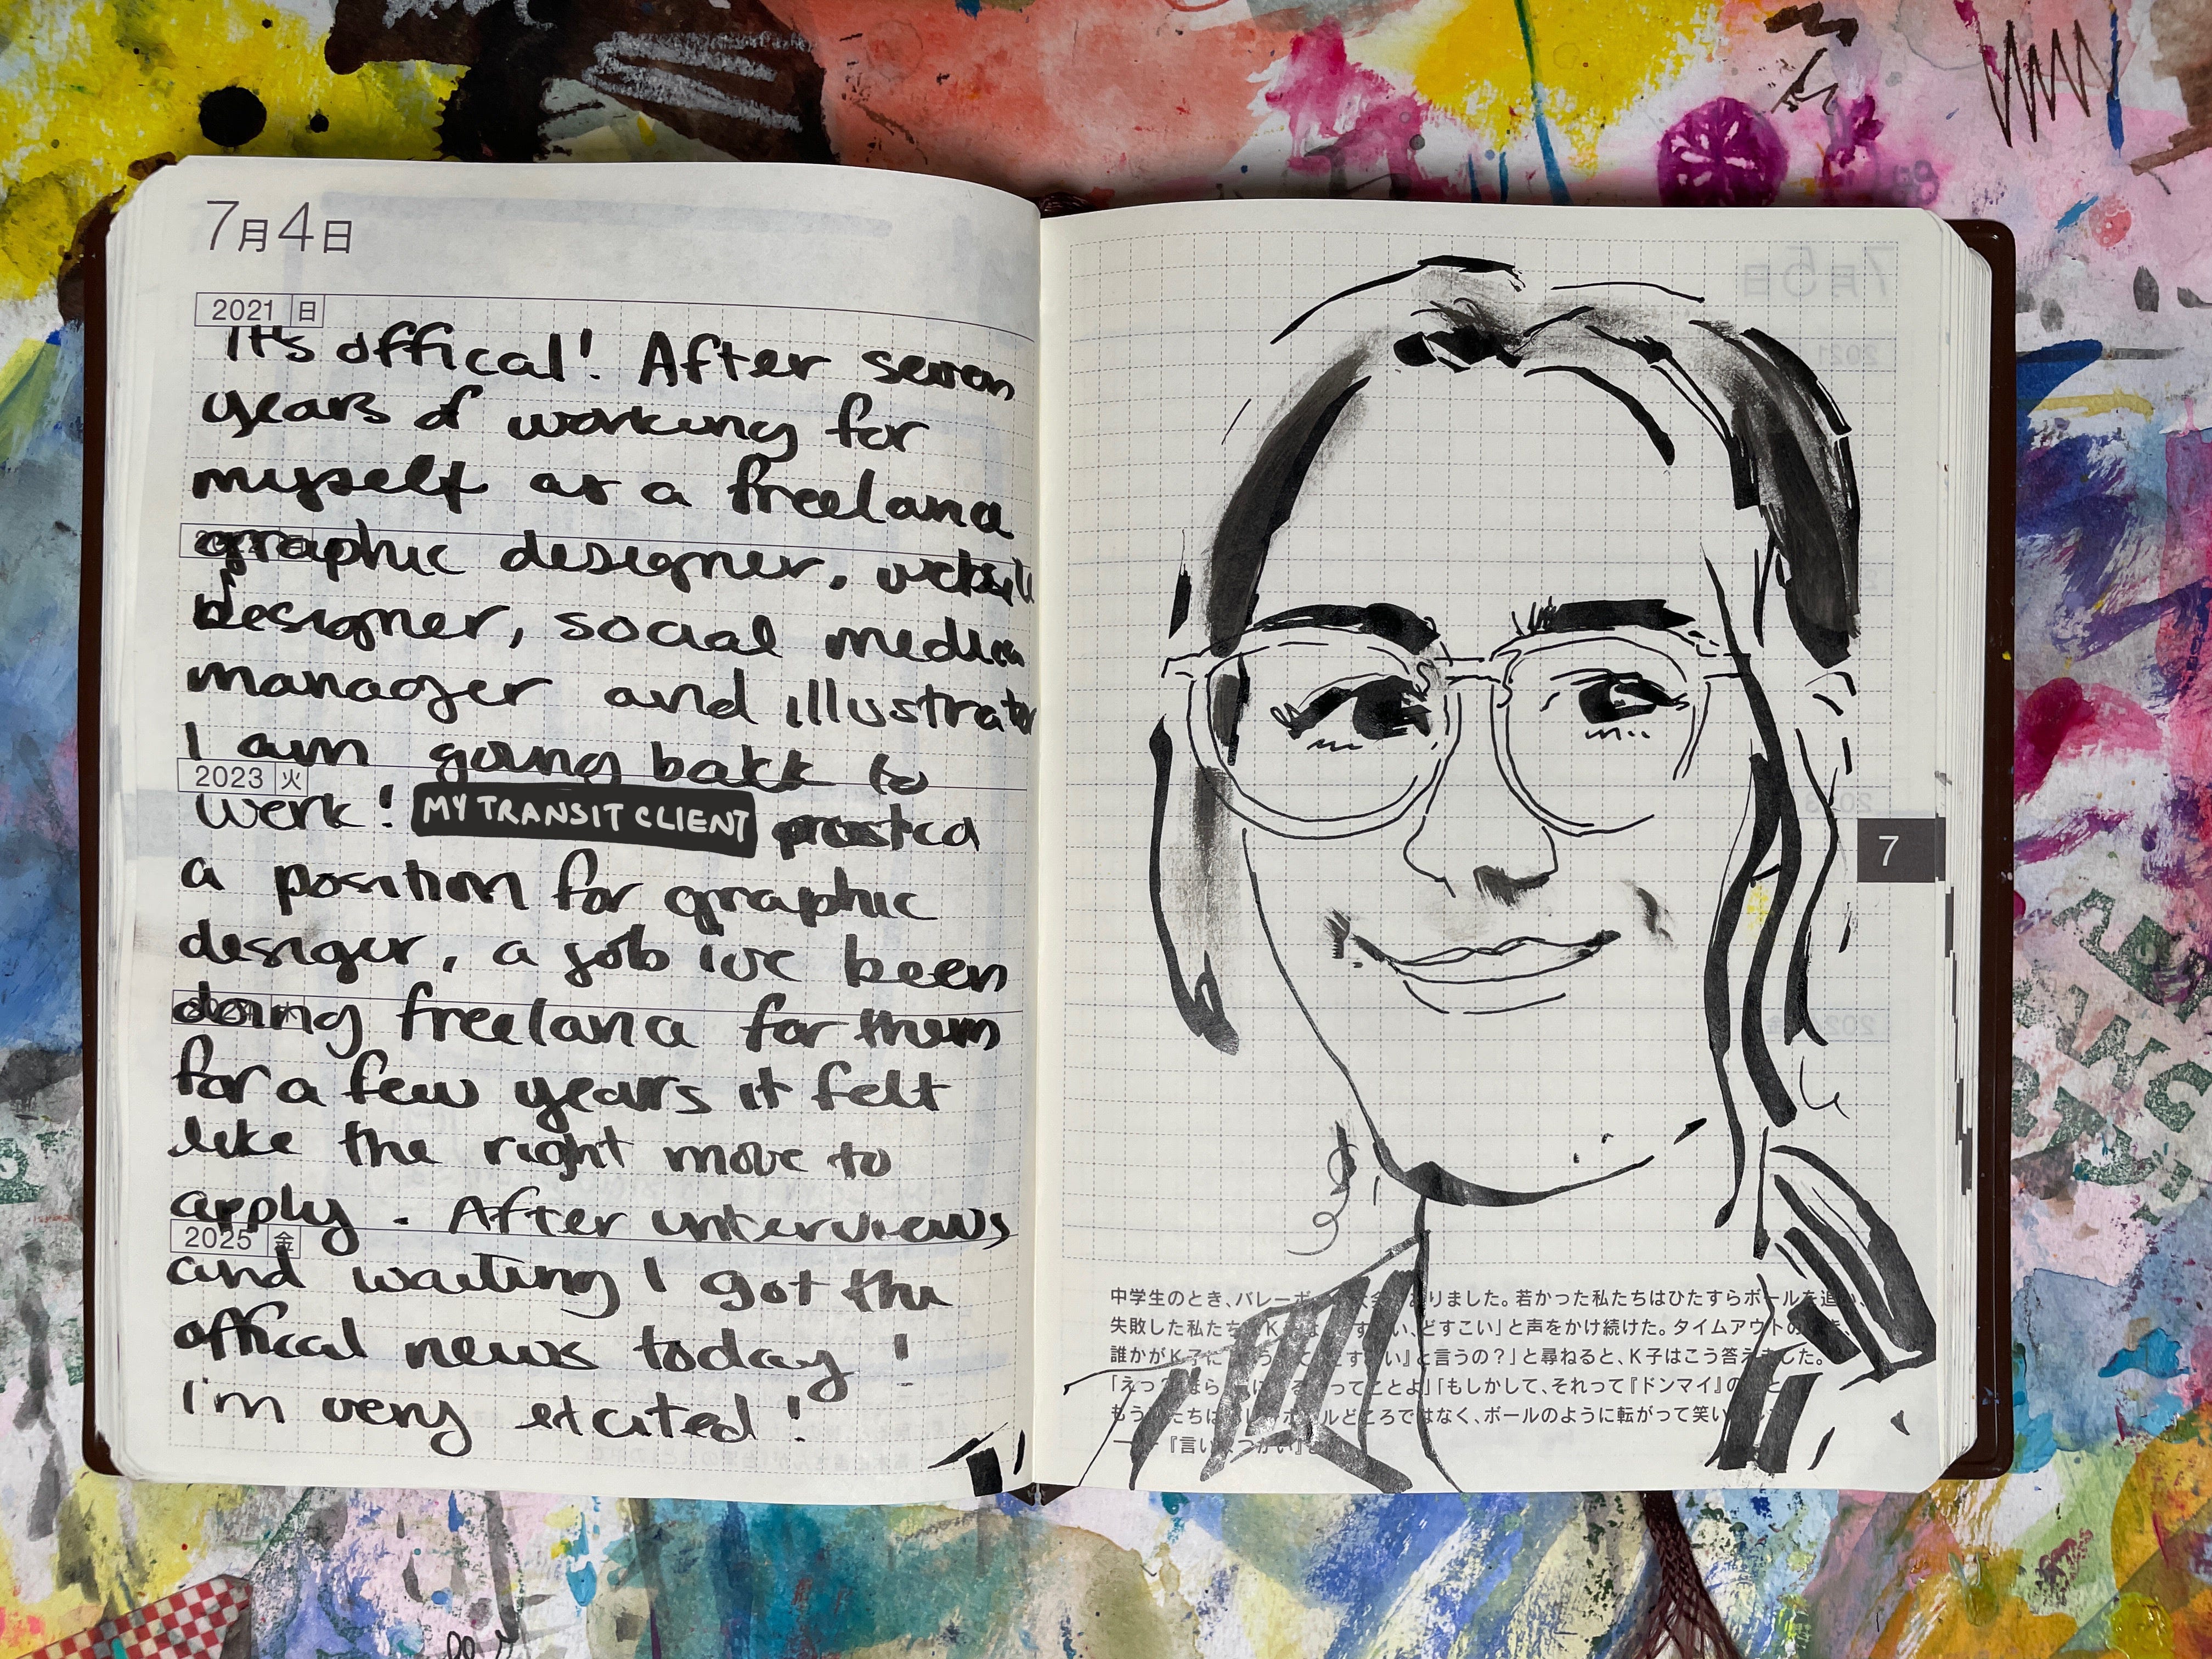 7月4日
2021 日
It's offical! After seven
years of working for
myself as a freelance
graphic designer, website
designer, social media
manager and illustrator
I am going back to
2023 火
work! MY TRANSIT CLIENT posted
a position for graphic
desiger, a job ive been
doing freelance for them
for a few years it felt
like the right move to
apply. After interviews
2025 金
and waiting I got the
offical news today!
I'm very excited!
7
中学生のとき、バレーボ 大会 ありました。若かった私たちはひたすらボールを追い、
失敗した私たち K い、どすこい」と声をかけ続けた。タイムアウトの
誰かがK子に と言うの?」と尋ねると、K子はこう答えました。
ってことよ」「もしかして、それって『ドンマイ』の
もう ルどころではなく、ボールのように転がって笑い